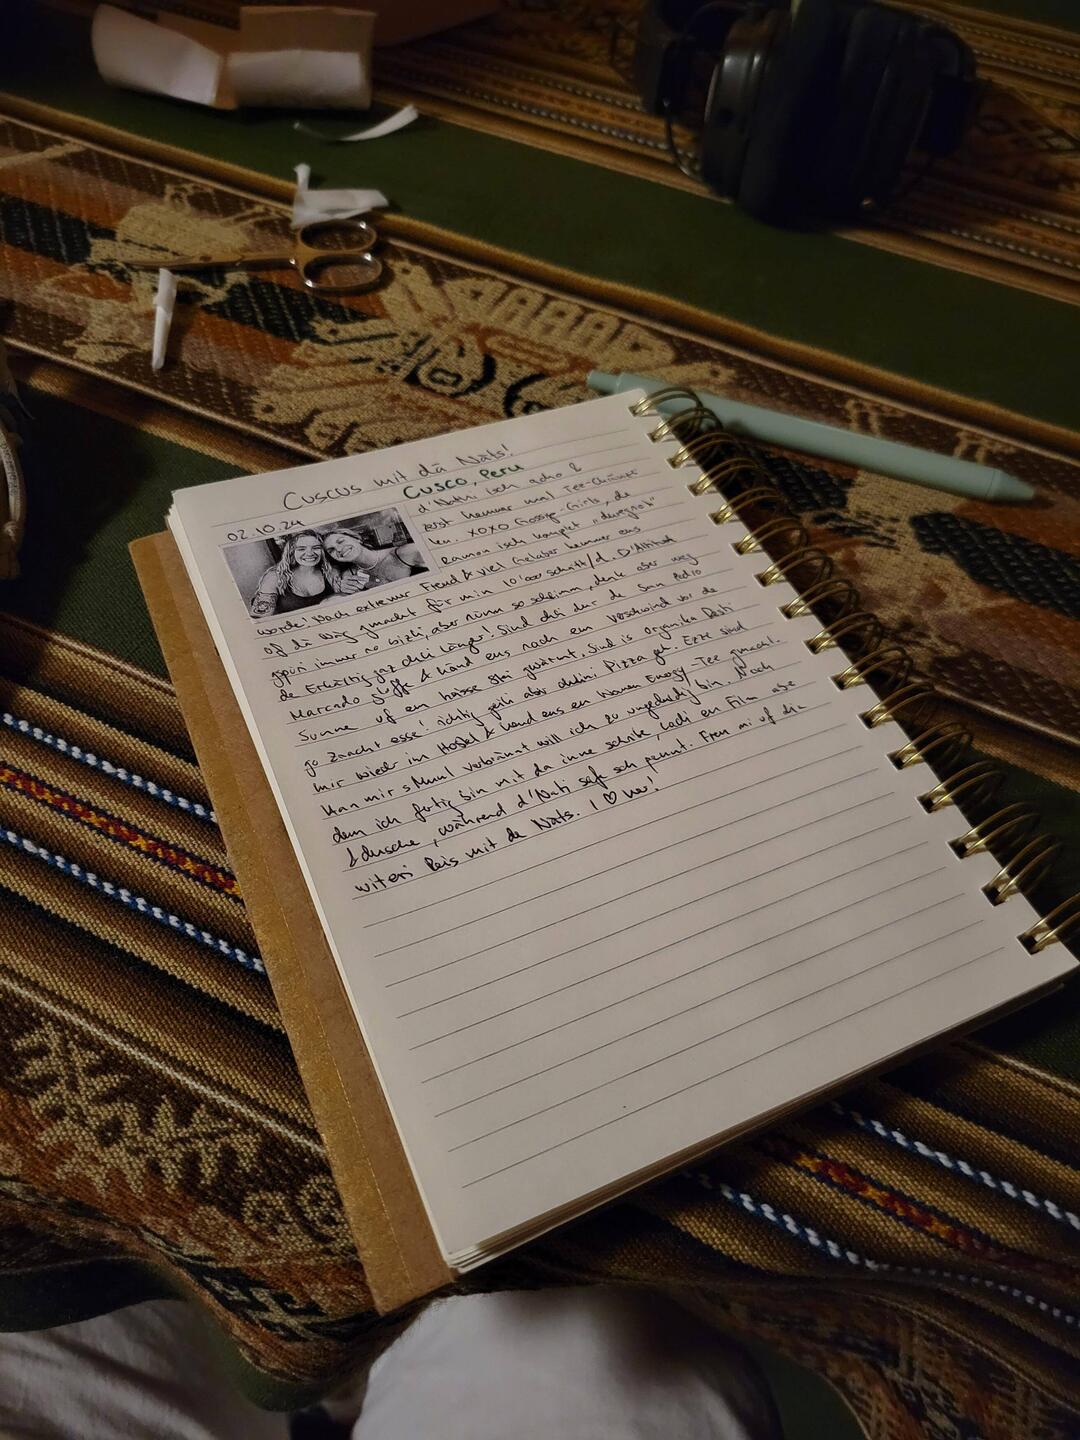 Cuscus mit dä Näts!
Cusco, Peru
02.10.24
d'Nathi isch acho &
erst hemmer mal Tee-
XOXO Gossip-Girls, de
Ramon isch komplet "dunegnoh"
worde! Nach extremer Freud & viel Gelaber hemmer eus
of dä Wäg gmacht für min 10'000 schritt/d. D'Altitud
gspüri immer no bizli, aber nümm so schlimm, denk aber weg
de Erkältig gaz chli länger! Sind chli dur de San Pedro
Marcado & händ eus nach em vor de
Sunne uf en heisse Stei gwärmt. Sind is organika Resti
go Znacht esse! richtig geili aber chlini Pizza geh. Etze sind
mir wieder im Hostel & händ eus en Warmen Energy-Tee gmacht.
Han mir s Muul verbrännt will ich so ungeduldig bin. Noch
dem ich fertig bin mit da inne schribe, ladi en Film abe
& dusche, während d'Nati safe scho pennt. Freu mi uf die
witeri Reis mit de Näts. I ♡ her!